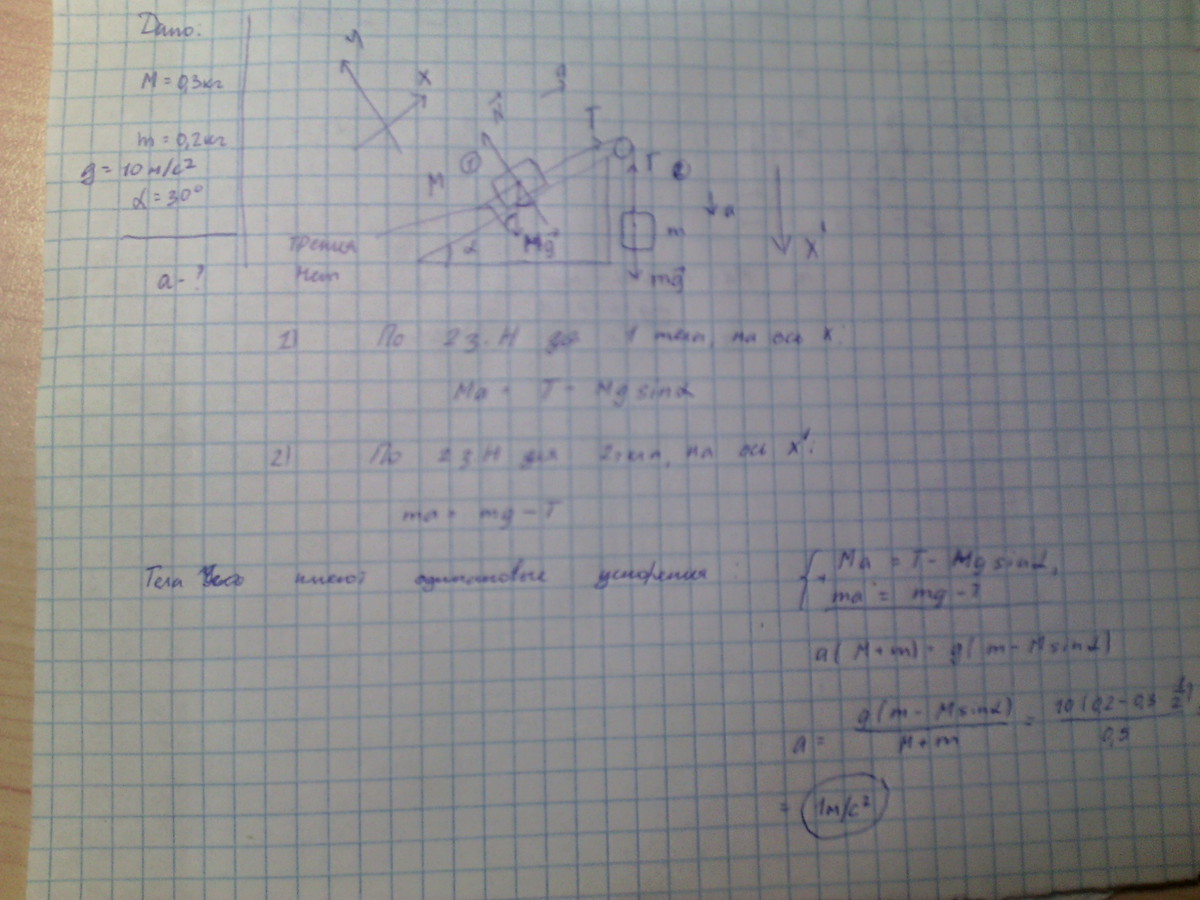 Дано:
M = 0,3кг
m = 0,2кг
g = 10 м/с²
α = 30°
a - ?
y
x
g
N
T
T
M
1
2
a
m
α
Mg
mg
x'
трения
нет
1) По 2 з. Н для 1 тела, на ось x:
Ma = T - Mg sinα
2) По 2 з Н для 2 тела, на ось x':
ma = mg - T
Тела имеют одинаковые ускорения
Ma = T - Mg sinα,
ma = mg - T
a(M+m) = g(m - M sinα)
a = g(m - M sinα) / M+m = 10(0,2 - 0,3 1/2) / 0,5
= 1м/с²